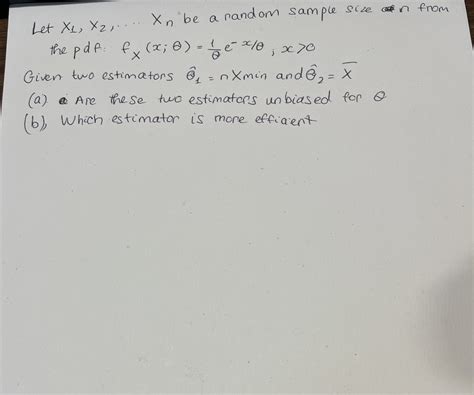 Let X1, X2, .... Xn be a random sample size n from
the pdf: fX (x; θ) = 1/θ e^-x/θ, x>0
Given two estimators θ̂1 = nXmin and θ̂2 = X̄
(a) Are these two estimators unbiased for θ
(b), Which estimator is more effient